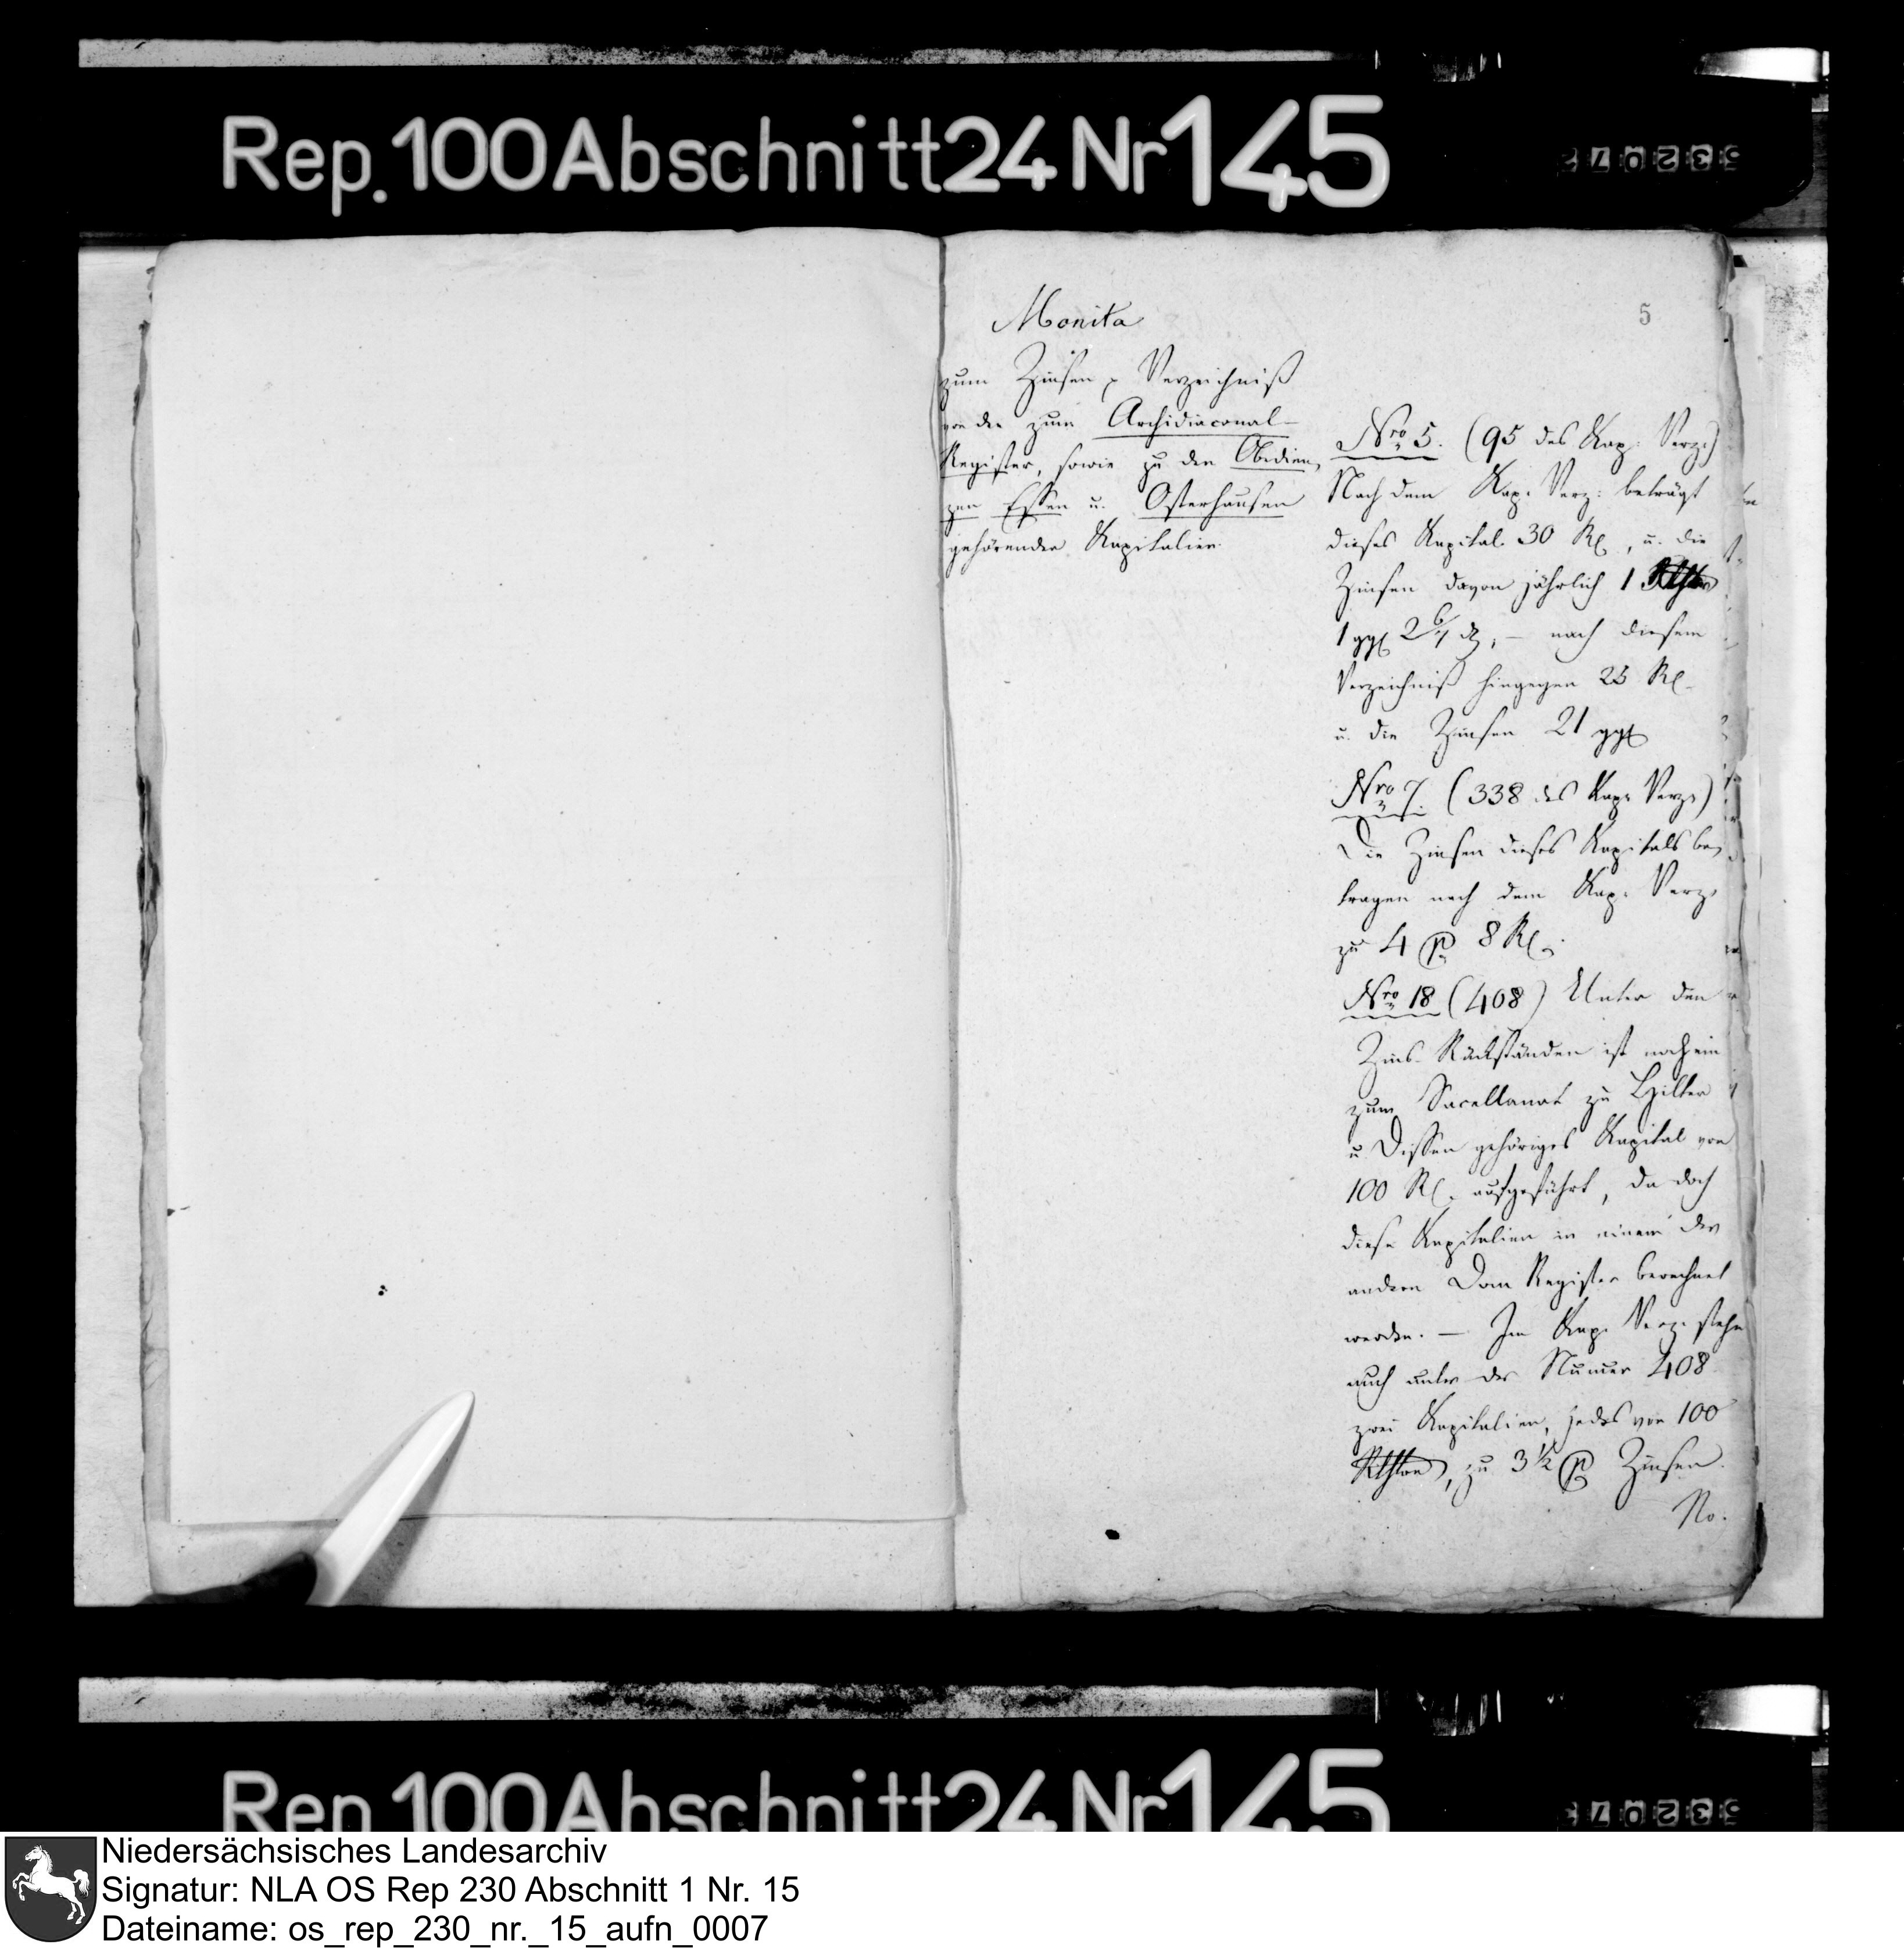 Rep. 100 Abschnitt 24 Nr 145
5
Monita
zum Zinsen-Verzeichniß
von den zum Archidiaconal-
Register, sowie zu den Obedien-
zen Essen u. Osterhausen
gehörenden Kapitalien
Nro 5. (95 des Kap: Verz:)
Nach dem Kap: Verz: beträgt
dieses Kapital 30 Rl, u. die
Zinsen davon jährlich 1 Rthlr
1 ggl 2 6/7 d, – nach diesem
Verzeichniß hingegen 25 Rl
u. die Zinsen 21 ggl
Nro 7. (338 des Kap: Verz:)
Die Zinsen dieses Kapitals be-
tragen nach dem Kap: Verz:
zu 4 p 8 Rl.
Nro 18 (408) Unter den
Zins-Rückständen ist noch ein
zum Sacellanat zu Hilter
u Dissen gehöriges Kapital von
100 Rl. aufgeführt, da doch
diese Kapitalien in einem der
andern Dom Register berechnet
werden. — Im Kap: Verz: stehn
auch unter der Numer 408
zwei Kapitalien, jedes von 100
Rthlrn, zu 3 1/2 p Zinsen.
No.
Rep. 100 Abschnitt 24 Nr 145
Niedersächsisches Landesarchiv
Signatur: NLA OS Rep 230 Abschnitt 1 Nr. 15
Dateiname: os_rep_230_nr._15_aufn_0007